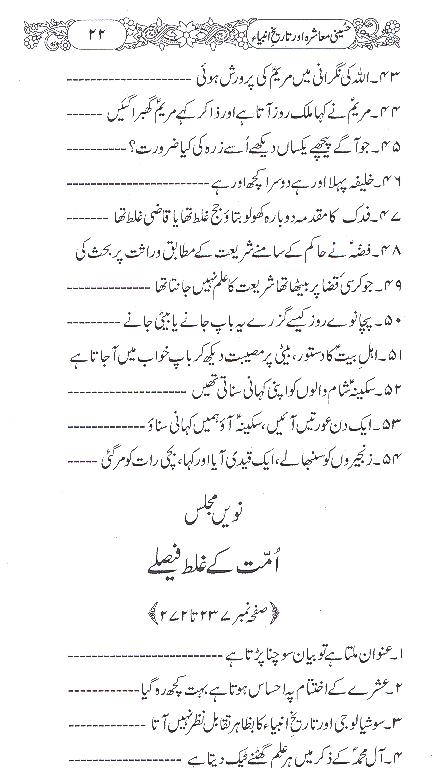 حسینی معاشرہ اور تاریخِ انبیاء ۲۲
۴۳۔اللہ کی نگرانی میں مریمؑ کی پرورش ہوئی --------------------
۴۴۔ مریمؑ نے کہا ملک روز آتا ہے اور ذاکر کہے مریمؑ گھبرا گئیں ------
۴۵۔ جو آگے پیچھے یکساں دیکھے اُسے زرہ کی کیا ضرورت؟ ----------
۴۶۔ خلیفہ پہلا اور ہے دوسرا کچھ اور ہے ----------------------
۴۷۔ فدک کا مقدمہ دوبارہ کھولو بتاؤ جج غلط تھا یا قاضی غلط تھا -------
۴۸۔ فضہؑ نے حاکم کے سامنے شریعت کے مطابق وراثت پر بحث کی
۴۹۔ جو کرسیٔ قضا پر بیٹھا تھا شریعت کا علم نہیں جانتا تھا -------------
۵۰۔ پچانوے روز کیسے گزرے یہ باپ جانے یا بیٹی جانے ---------
۵۱۔ اہلِ بیتؑ کا دستور، بیٹی پر مصیبت دیکھ کر باپ خواب میں آجاتا ہے
۵۲۔ سکینہؑ شام والوں کو اپنی کہانی سناتی تھیں -----------------
۵۳۔ ایک دن عورتیں آئیں، سکینہؑ آؤ ہمیں کہانی سناؤ --------------
۵۴۔ زنجیروں کو سنبھالے، ایک قیدی آیا اور کہا، بچی رات کو مر گئی -----
نویں مجلس
اُمّت کے غلط فیصلے
﴿صفحہ نمبر ۲۳۷ تا ۲۷۲﴾
۱۔عنوان ملتا ہے تو بیان سوچنا پڑتا ہے -----------------------
۲۔ عشرے کے اختتام پہ احساس ہوتا ہے بہت کچھ رہ گیا -----------
۳۔ سوشیالوجی اور تاریخِ انبیاء کا بظاہر تقابل نظر نہیں آتا ----------
۴۔ آلِ محمدؐ کے ذکر میں ہر علم گھٹنے ٹیک دیتا ہے ----------------